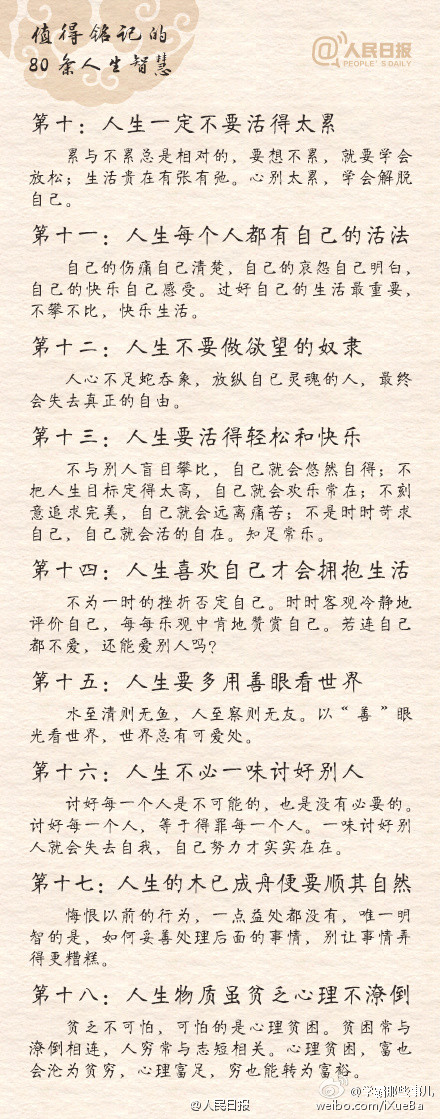 值得铭记的
80条人生智慧
@人民日报
PEOPLE'S DAILY
第十：人生一定不要活得太累
累与不累总是相对的，要想不累，就要学会
放松；生活贵在有张有弛。心别太累，学会解脱
自己。
第十一：人生每个人都有自己的活法
自己的伤痛自己清楚，自己的哀怨自己明白，
自己的快乐自己感受。过好自己的生活最重要，
不攀不比，快乐生活。
第十二：人生不要做欲望的奴隶
人心不足蛇吞象，放纵自己灵魂的人，最终
会失去真正的自由。
第十三：人生要活得轻松和快乐
不与别人盲目攀比，自己就会悠然自得；不
把人生目标定得太高，自己就会欢乐常在；不刻
意追求完美，自己就会远离痛苦；不是时时苛求
自己，自己就会活的自在。知足常乐。
第十四：人生喜欢自己才会拥抱生活
不为一时的挫折否定自己。时时客观冷静地
评价自己，每每乐观中肯地赞赏自己。若连自己
都不爱，还能爱别人吗？
第十五：人生要多用善眼看世界
水至清则无鱼，人至察则无友。以“善”眼
光看世界，世界总有可爱处。
第十六：人生不必一味讨好别人
讨好每一个人是不可能的，也是没有必要的。
讨好每一个人，等于得罪每一个人。一味讨好别
人就会失去自我，自己努力才实实在在。
第十七：人生的木已成舟便要顺其自然
悔恨以前的行为，一点益处都没有，唯一明
智的是，如何妥善处理后面的事情，别让事情弄
得更糟糕。
第十八：人生物质虽贫乏心理不潦倒
贫乏不可怕，可怕的是心理贫困。贫困常与
潦倒相连，人穷常与志短相关。心理贫困，富也
会沦为贫穷，心理富足，穷也能转为富裕。
@学霸那些事儿
@人民日报
weibo.com/iXueBa